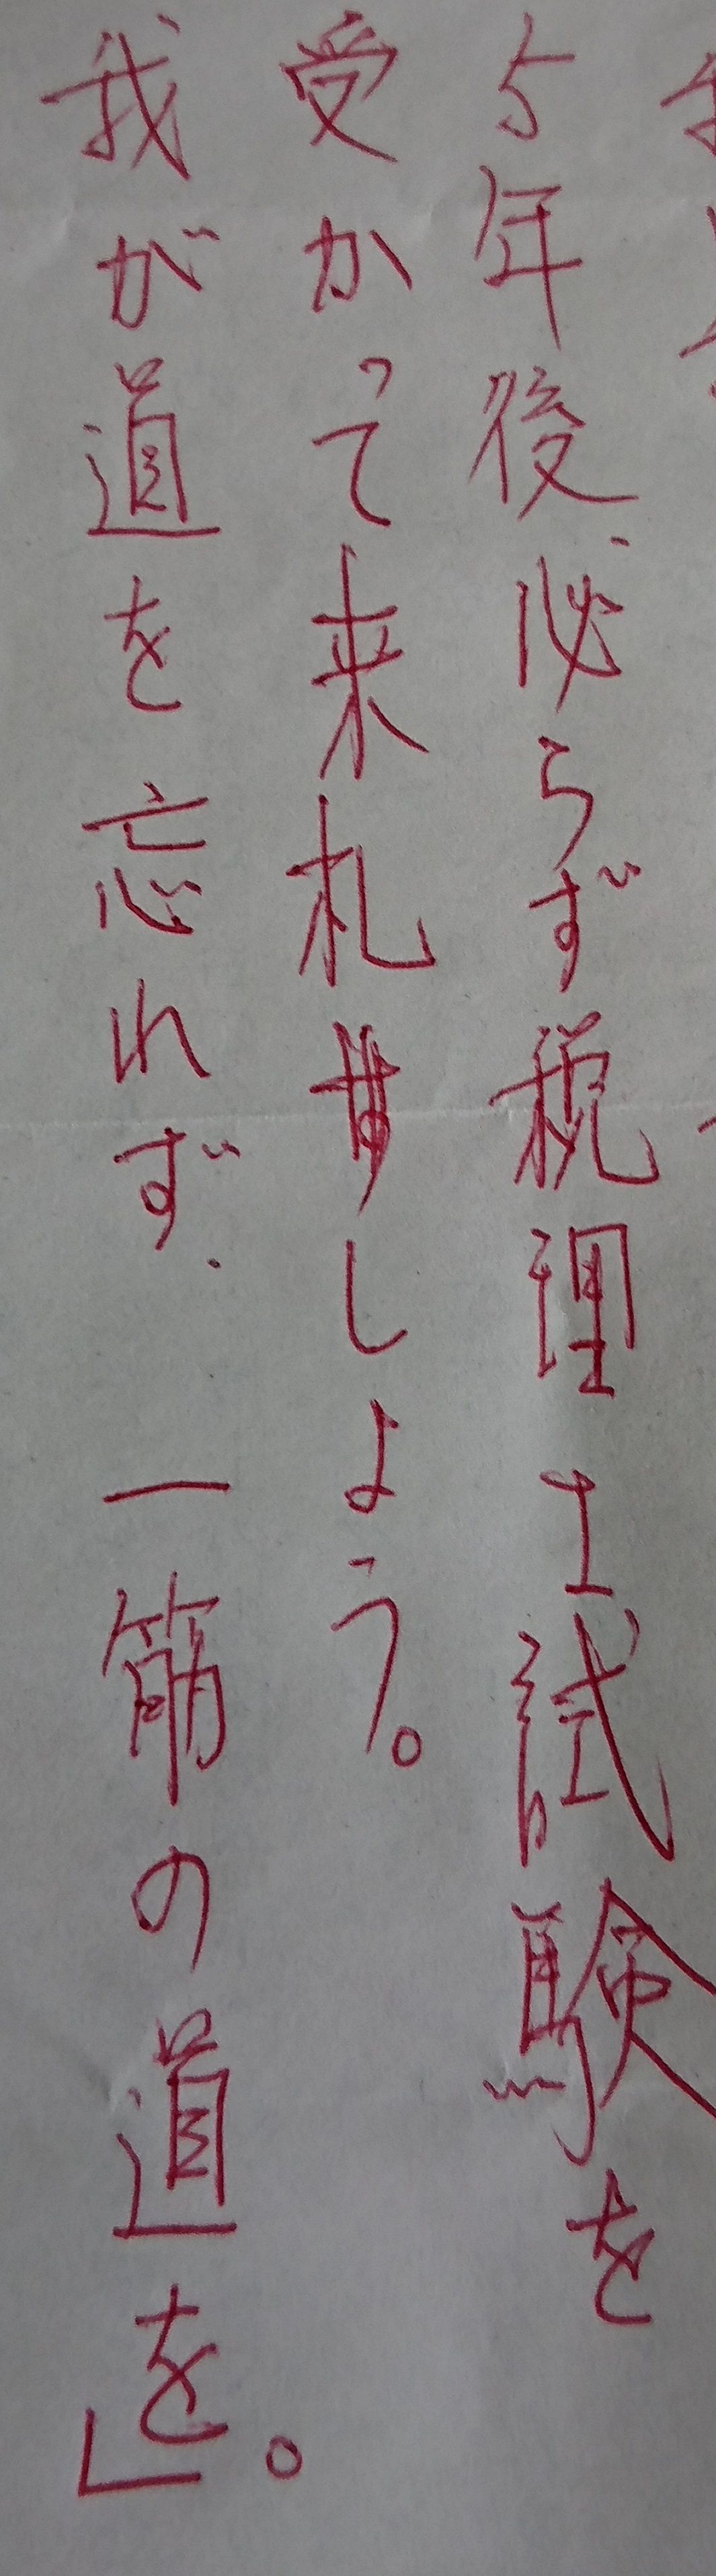 5年後、必らず税理士試験を
受かって来札ましょう。
我が道を忘れず、一筋の道を。」